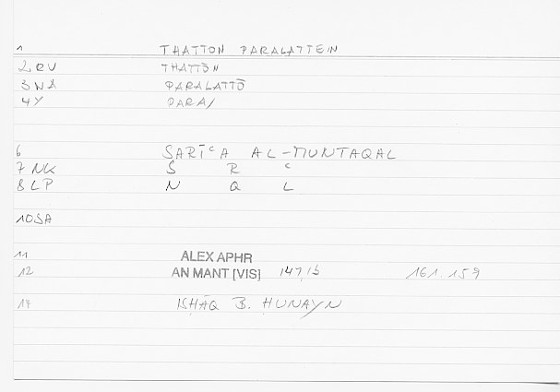 1 THATTON PARALATTEIN
2 RU THATTŌN
3 WA PARALATTŌ
4 Y PARAY
6 SARĪᶜA AL-MUNTAQAL
7 NK S R ᶜ
8 LP N Q L
10 SA
11 ALEX APHR
12 AN MANT [VIS] 147,15 161.159
14 ISḤĀQ B. ḤUNAYN